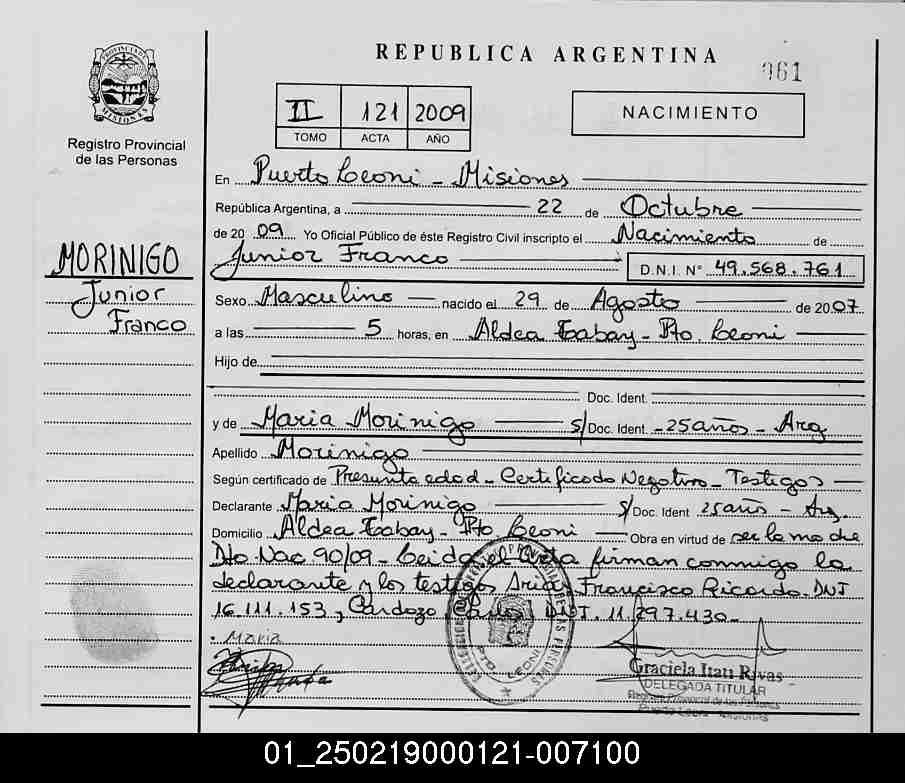 PROVINCIA DE
MISIONES
Registro Provincial
de las Personas
MORINIGO
Junior
Franco
REPUBLICA ARGENTINA
061
II 121 2009
TOMO ACTA AÑO
NACIMIENTO
En Puerto Leoni - Misiones
República Argentina, a 22 de Octubre
de 20 09 Yo Oficial Público de éste Registro Civil inscripto el Nacimiento de
Junior Franco D.N.I. Nº 49.568.761
Sexo Masculino nacido el 29 de Agosto de 20 07
a las 5 horas, en Aldea Tabay - Pto. Leoni
Hijo de
Doc. Ident.
y de Maria Morinigo s/ Doc. Ident. - 25 años - Arg
Apellido Morinigo
Según certificado de Presunta edad - Certificado Negativo - Testigos
Declarante Maria Morinigo s/ Doc. Ident 25 años - Arg.
Domicilio Aldea Tabay - Pto Leoni Obra en virtud de ser la madre
Dto. Nac 90/09 - Leida el Acta firman conmigo la
declarante y los testigos Arias, Francisco Ricardo - DNI
16.111.153, Cardozo DNI. 11.297.430
Maria
PTO. LEONI
Graciela Itati Rivas
DELEGADA TITULAR
Registro Provincial de las Personas
Puerto Leoni - Misiones
01_250219000121-007100